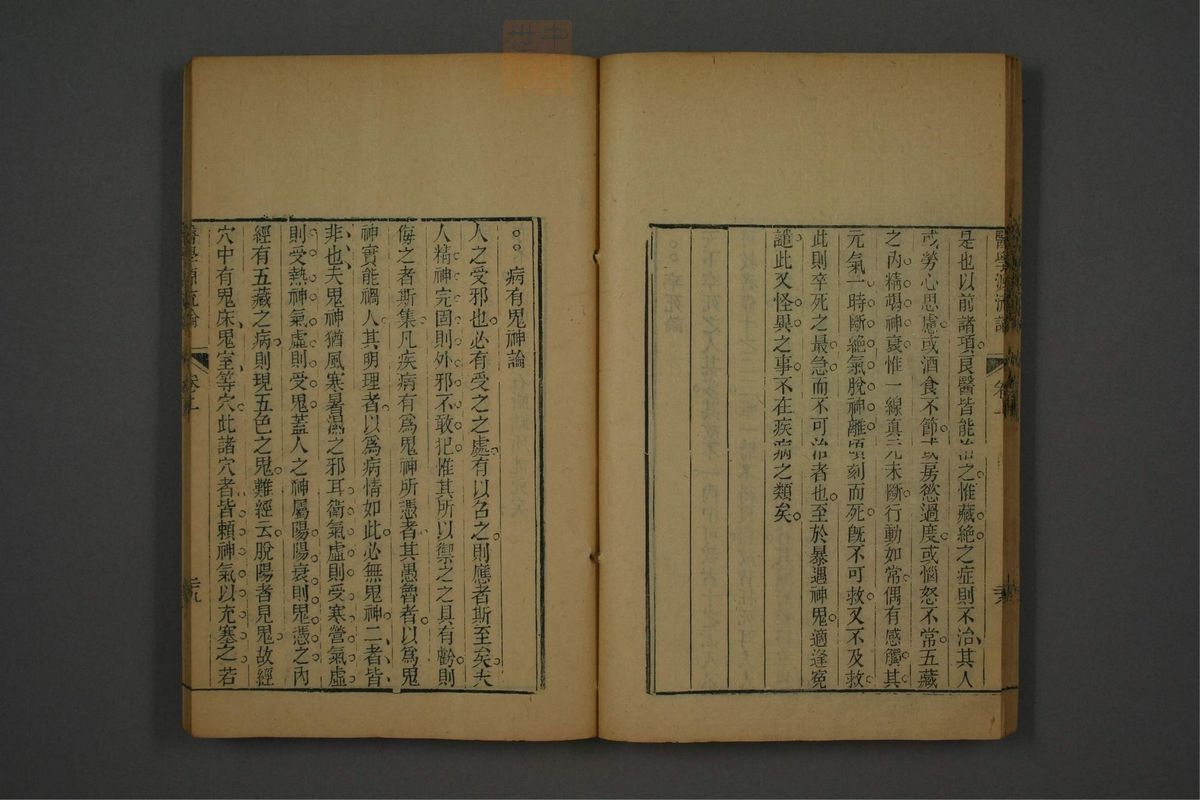 醫學源流論
是也以前諸項良醫皆能治之惟藏絕之症則不治其人
或勞心思慮或酒食不節或房慾過度或惱怒不常五藏
之內精竭神衰惟一線真元未斷行動如常偶有感觸其
元氣一時斷絕氣脫神離頃刻而死旣不可救又不及救
此則卒死之最急而不可治者也至於暴遇神鬼適逢冤
譴此又怪異之事不在疾病之類矣
病有鬼神論
人之受邪也必有受之之處有以召之則應者斯至矣夫
人精神完固則外邪不敢犯惟其所以禦之之具有虧則
侮之者斯集凡疾病有爲鬼神所憑者其愚魯者以爲鬼
神實能禍人其明理者以爲病情如此必無鬼神二者皆
非也夫鬼神猶風寒暑濕之邪耳衛氣虛則受寒營氣虛
則受熱神氣虛則受鬼蓋人之神屬陽陽衰則鬼憑之內
經有五藏之病則現五色之鬼難經云脫陽者見鬼故經
穴中有鬼床鬼室等穴此諸穴者皆賴神氣以充塞之若
醫學源流論